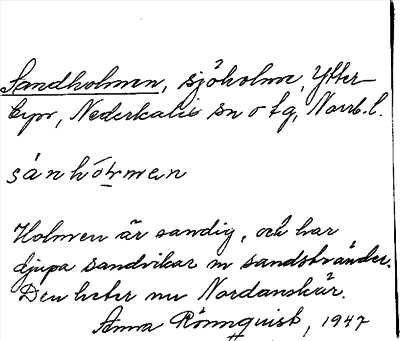 Sandholmen, sjöholme, Ytter-
byn, Nederkalix sn o tg, Norrb. l.
sánhòlmen
Holmen är sandig, och har
djupa sandvikar m sandstränder.
Den heter nu Nordanskär.
Anna Rönnquist, 1947